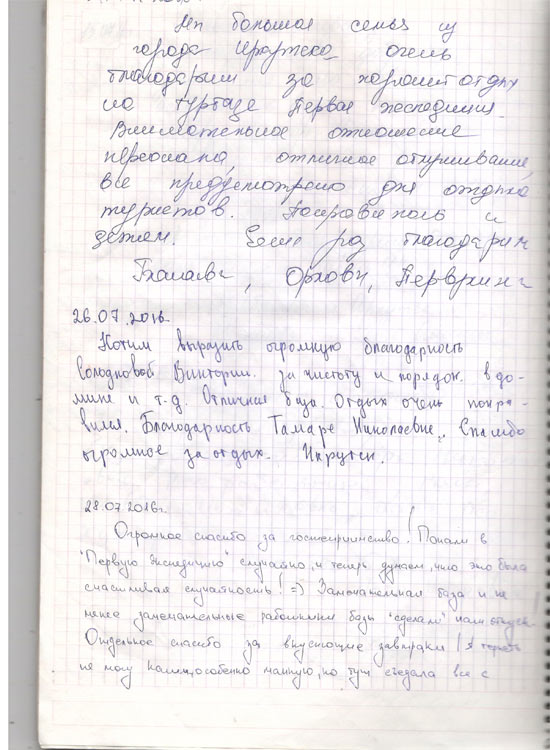 большая семья из
города Иркутска очень
благодарим за хороший отдых
на турбазе Первая экспедиция.
Внимательное отношение
персонала, отличное обслуживание,
все предусмотрено для отдыха
туристов. Понравилось и
детям. Еще раз благодарим
26.07.2016
Хотим выразить огромную благодарность
Солодковой Виктории. за чистоту и порядок. в до-
мике и т.д. Отличная база. Отдых очень понра-
вился. Благодарность Тамаре Николаевне. Спасибо
огромное за отдых. Иркутск.
28.07.2016г.
Огромное спасибо за гостеприимство! Попали в
"Первую экспедицию" случайно, и теперь думаем, что это была
счастливая случайность! =) Замечательная база и не
менее замечательные работники базы "сделали" нам отпуск.
Отдельное спасибо за вкуснющие завтраки! Я терпеть
не могу каши, особенно манную, но тут съедала все с